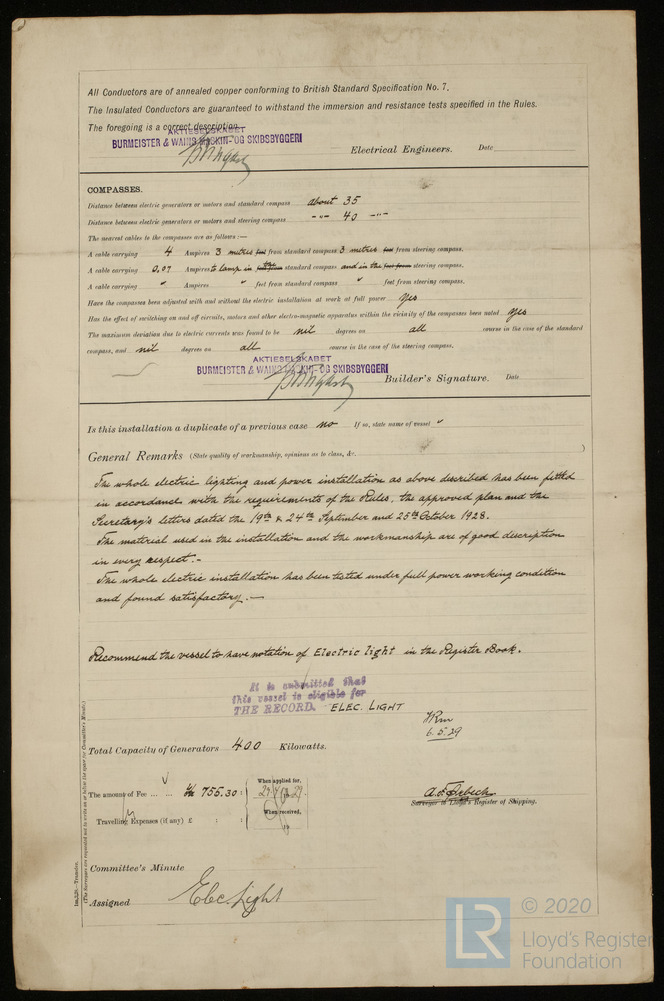 All Conductors are of annealed copper conforming to British Standard Specification No. 7.
The Insulated Conductors are guaranteed to withstand the immersion and resistance tests specified in the Rules.
The foregoing is a correct description.
AKTIESELSKABET
BURMEISTER & WAIN'S MASKIN- OG SKIBSBYGGERI
Electrical Engineers. Date
COMPASSES.
Distance between electric generators or motors and standard compass about 35
Distance between electric generators or motors and steering compass -"- 40 -"-
The nearest cables to the compasses are as follows:—
A cable carrying 4 Ampères 3 metres feet from standard compass 3 metres feet from steering compass.
A cable carrying 0.07 Ampères to lamp in the standard compass and in the feet from steering compass.
A cable carrying " Ampères " feet from standard compass " feet from steering compass.
Have the compasses been adjusted with and without the electric installation at work at full power yes
Has the effect of switching on and off circuits, motors and other electro-magnetic apparatus within the vicinity of the compasses been noted yes
The maximum deviation due to electric currents was found to be nil degrees on all course in the case of the standard
compass, and nil degrees on all course in the case of the steering compass.
AKTIESELSKABET
BURMEISTER & WAIN'S MASKIN- OG SKIBSBYGGERI
Builder's Signature. Date
Is this installation a duplicate of a previous case no If so, state name of vessel "
General Remarks (State quality of workmanship, opinions as to class, &c. )
The whole electric lighting and power installation as above described has been fitted
in accordance with the requirements of the Rules, the approved plan and the
Secretary's letters dated the 19th & 24th September and 25th October 1928.
The material used in the installation and the workmanship are of good description
in every respect.-
The whole electric installation has been tested under full power working condition
and found satisfactory.—
Recommend the vessel to have notation of Electric light in the Register Book.
It is submitted that
this vessel is eligible for
THE RECORD. ELEC. LIGHT
6.5.29
Total Capacity of Generators 400 Kilowatts.
The amount of Fee ... ... 755.30 :
When applied for,
Surveyor to Lloyd's Register of Shipping.
Travelling Expenses (if any) £ : :
When received,
19
Committee's Minute
Assigned Elec. Light
(The Surveyors are requested not to write on or below the space for Committee's Minute.)
© 2020
LR
Lloyd's Register
Foundation